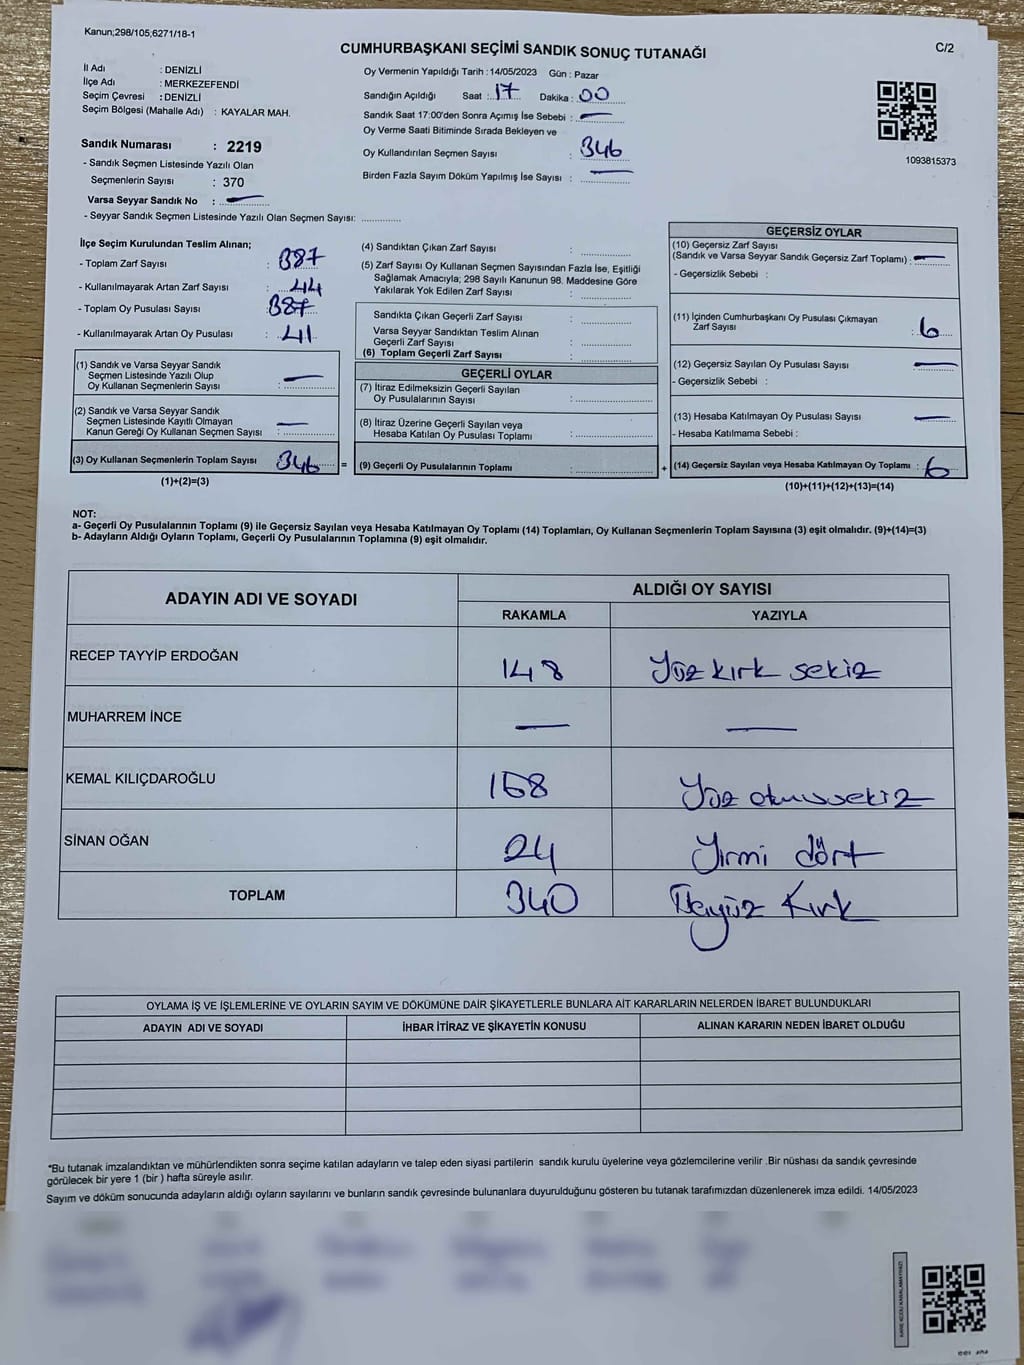 Kanun;298/105;6271/18-1
C/2
CUMHURBAŞKANI SEÇİMİ SANDIK SONUÇ TUTANAĞI
İl Adı : DENİZLİ
İlçe Adı : MERKEZEFENDİ
Seçim Çevresi : DENİZLİ
Seçim Bölgesi (Mahalle Adı) : KAYALAR MAH.
Sandık Numarası : 2219
- Sandık Seçmen Listesinde Yazılı Olan
Seçmenlerin Sayısı : 370
Varsa Seyyar Sandık No : —
- Seyyar Sandık Seçmen Listesinde Yazılı Olan Seçmen Sayısı: ............
Oy Vermenin Yapıldığı Tarih : 14/05/2023 Gün : Pazar
Sandığın Açıldığı Saat : 17 Dakika : 00
Sandık Saat 17:00'den Sonra Açımış İse Sebebi : —
Oy Verme Saati Bitiminde Sırada Bekleyen ve
Oy Kullandırılan Seçmen Sayısı : 346
Birden Fazla Sayım Döküm Yapılmış İse Sayısı : —
1093815373
İlçe Seçim Kurulundan Teslim Alınan;
- Toplam Zarf Sayısı : 387
- Kullanılmayarak Artan Zarf Sayısı : 44
- Toplam Oy Pusulası Sayısı : 387
- Kullanılmayarak Artan Oy Pusulası : 41
(1) Sandık ve Varsa Seyyar Sandık
Seçmen Listesinde Yazılı Olup
Oy Kullanan Seçmenlerin Sayısı : —
(2) Sandık ve Varsa Seyyar Sandık
Seçmen Listesinde Kayıtlı Olmayan
Kanun Gereği Oy Kullanan Seçmen Sayısı : —
(3) Oy Kullanan Seçmenlerin Toplam Sayısı 346 =
(1)+(2)=(3)
(4) Sandıktan Çıkan Zarf Sayısı : ............
(5) Zarf Sayısı Oy Kullanan Seçmen Sayısından Fazla İse, Eşitliği
Sağlamak Amacıyla; 298 Sayılı Kanunun 98. Maddesine Göre
Yakılarak Yok Edilen Zarf Sayısı : ............
Sandıkta Çıkan Geçerli Zarf Sayısı : ............
Varsa Seyyar Sandıktan Teslim Alınan
Geçerli Zarf Sayısı : ............
(6) Toplam Geçerli Zarf Sayısı : ............
GEÇERLİ OYLAR
(7) İtiraz Edilmeksizin Geçerli Sayılan
Oy Pusulalarının Sayısı : ............
(8) İtiraz Üzerine Geçerli Sayılan veya
Hesaba Katılan Oy Pusulası Toplamı : ............
(9) Geçerli Oy Pusulalarının Toplamı : ............ +
GEÇERSİZ OYLAR
(10) Geçersiz Zarf Sayısı
(Sandık ve Varsa Seyyar Sandık Geçersiz Zarf Toplamı) : —
- Geçersizlik Sebebi :
(11) İçinden Cumhurbaşkanı Oy Pusulası Çıkmayan
Zarf Sayısı : 6
(12) Geçersiz Sayılan Oy Pusulası Sayısı : —
- Geçersizlik Sebebi :
(13) Hesaba Katılmayan Oy Pusulası Sayısı : —
- Hesaba Katılmama Sebebi :
(14) Geçersiz Sayılan veya Hesaba Katılmayan Oy Toplamı : 6
(10)+(11)+(12)+(13)=(14)
NOT:
a- Geçerli Oy Pusulalarının Toplamı (9) ile Geçersiz Sayılan veya Hesaba Katılmayan Oy Toplamı (14) Toplamları, Oy Kullanan Seçmenlerin Toplam Sayısına (3) eşit olmalıdır. (9)+(14)=(3)
b- Adayların Aldığı Oyların Toplamı, Geçerli Oy Pusulalarının Toplamına (9) eşit olmalıdır.
ADAYIN ADI VE SOYADI ALDIĞI OY SAYISI
RAKAMLA YAZIYLA
RECEP TAYYİP ERDOĞAN 148 Yüz kırk sekiz
MUHARREM İNCE — —
KEMAL KILIÇDAROĞLU 168 Yüz otmıssekiz
SİNAN OĞAN 24 Yirmi dört
TOPLAM 340 Üçyüz Kırk
OYLAMA İŞ VE İŞLEMLERİNE VE OYLARIN SAYIM VE DÖKÜMÜNE DAİR ŞİKAYETLERLE BUNLARA AİT KARARLARIN NELERDEN İBARET BULUNDUKLARI
ADAYIN ADI VE SOYADI İHBAR İTİRAZ VE ŞİKAYETİN KONUSU ALINAN KARARIN NEDEN İBARET OLDUĞU
*Bu tutanak imzalandıktan ve mühürlendikten sonra seçime katılan adayların ve talep eden siyasi partilerin sandık kurulu üyelerine veya gözlemcilerine verilir .Bir nüshası da sandık çevresinde
görülecek bir yere 1 (bir ) hafta süreyle asılır.
Sayım ve döküm sonucunda adayların aldığı oyların sayılarını ve bunların sandık çevresinde bulunanlara duyurulduğunu gösteren bu tutanak tarafımızdan düzenlenerek imza edildi. 14/05/2023
KARE KODU KARALAMAYINIZ!